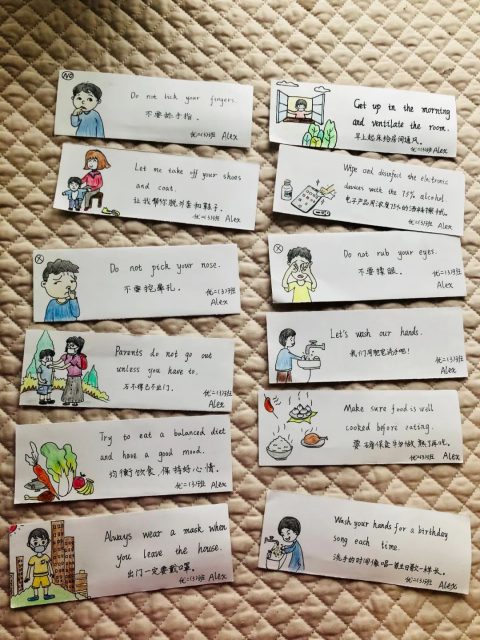 NO
Do not lick your fingers.
不要舔手指。
优二(3)班
Alex
Let me take off your shoes
and coat.
让我帮你脱外套和鞋子。
优二(3)班
Alex
Do not pick your nose.
不要挖鼻孔。
优二(3)班
Alex
Parents do not go out
unless you have to.
万不得已不出门。
优二(3)班
Alex
Try to eat a balanced diet
and have a good mood.
均衡饮食,保持好心情。
优二(3)班 Alex
Always wear a mask when
you leave the house.
出门一定要戴口罩。
优二(3)班 Alex
Get up in the morning
and ventilate the room.
早上起床给房间通风。
优二(3)班 Alex
Wipe and disinfect the electronic
devices with the 75% alcohol.
电子产品用浓度75%的酒精擦拭。
优二(3)班 Alex
Do not rub your eyes.
不要揉眼。
优二(3)班
Alex
Let's wash our hands.
我们用肥皂洗手吧!
优二(3)班
Alex
Make sure food is well
cooked before eating.
要确保食物做熟了再吃。
优二(3)班
Alex
Wash your hands for a birthday
song each time.
洗手的时间像唱一首生日歌一样长。
优二(3)班 Alex